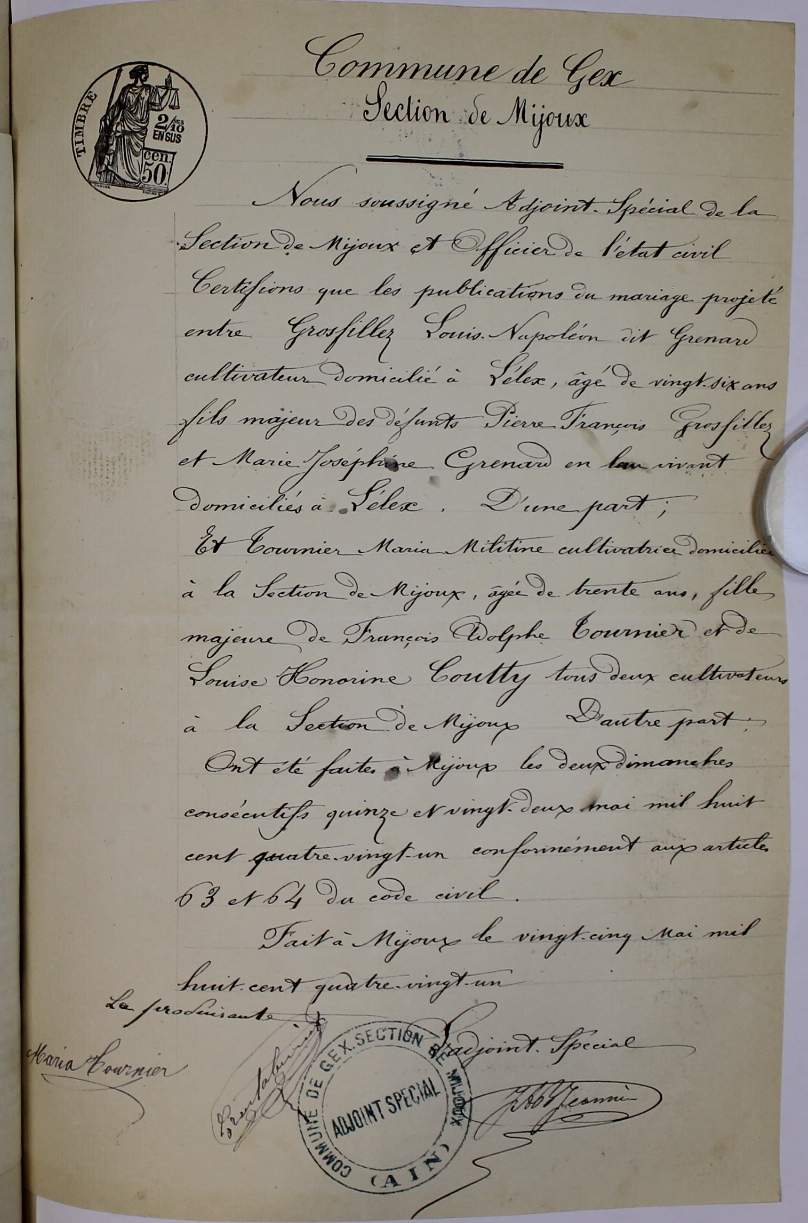 Commune de Gex
Section de Mijoux
TIMBRE
2/10
EN SUS
50 cen.
Nous soussigné Adjoint-Spécial de la
Section de Mijoux et Officier de l'état civil
Certifions que les publications du mariage projeté
entre Grosfillez Louis-Napoléon dit Grenard
cultivateur domicilié à Lélex, âgé de vingt-six ans
fils majeur des défunts Pierre François Grosfillez
et Marie Joséphine Grenard en leur vivant
domiciliés à Lélex. D'une part;
Et Tournier Maria Mélitine cultivatrice domiciliée
à la Section de Mijoux, âgée de trente ans, fille
majeure de François Adolphe Tournier et de
Louise Honorine Coutty tous deux cultivateurs
à la Section de Mijoux D'autre part.
Ont été faites à Mijoux les deux dimanches
consécutifs quinze et vingt-deux mai mil huit
cent quatre-vingt-un conformément aux articles
63 et 64 du code civil.
Fait à Mijoux le vingt-cinq Mai mil
huit-cent quatre-vingt-un
La produisante
L'adjoint-Spécial
Maria Tournier
COMMUNE DE GEX. SECTION DE MIJOUX
ADJOINT SPECIAL
(AIN)